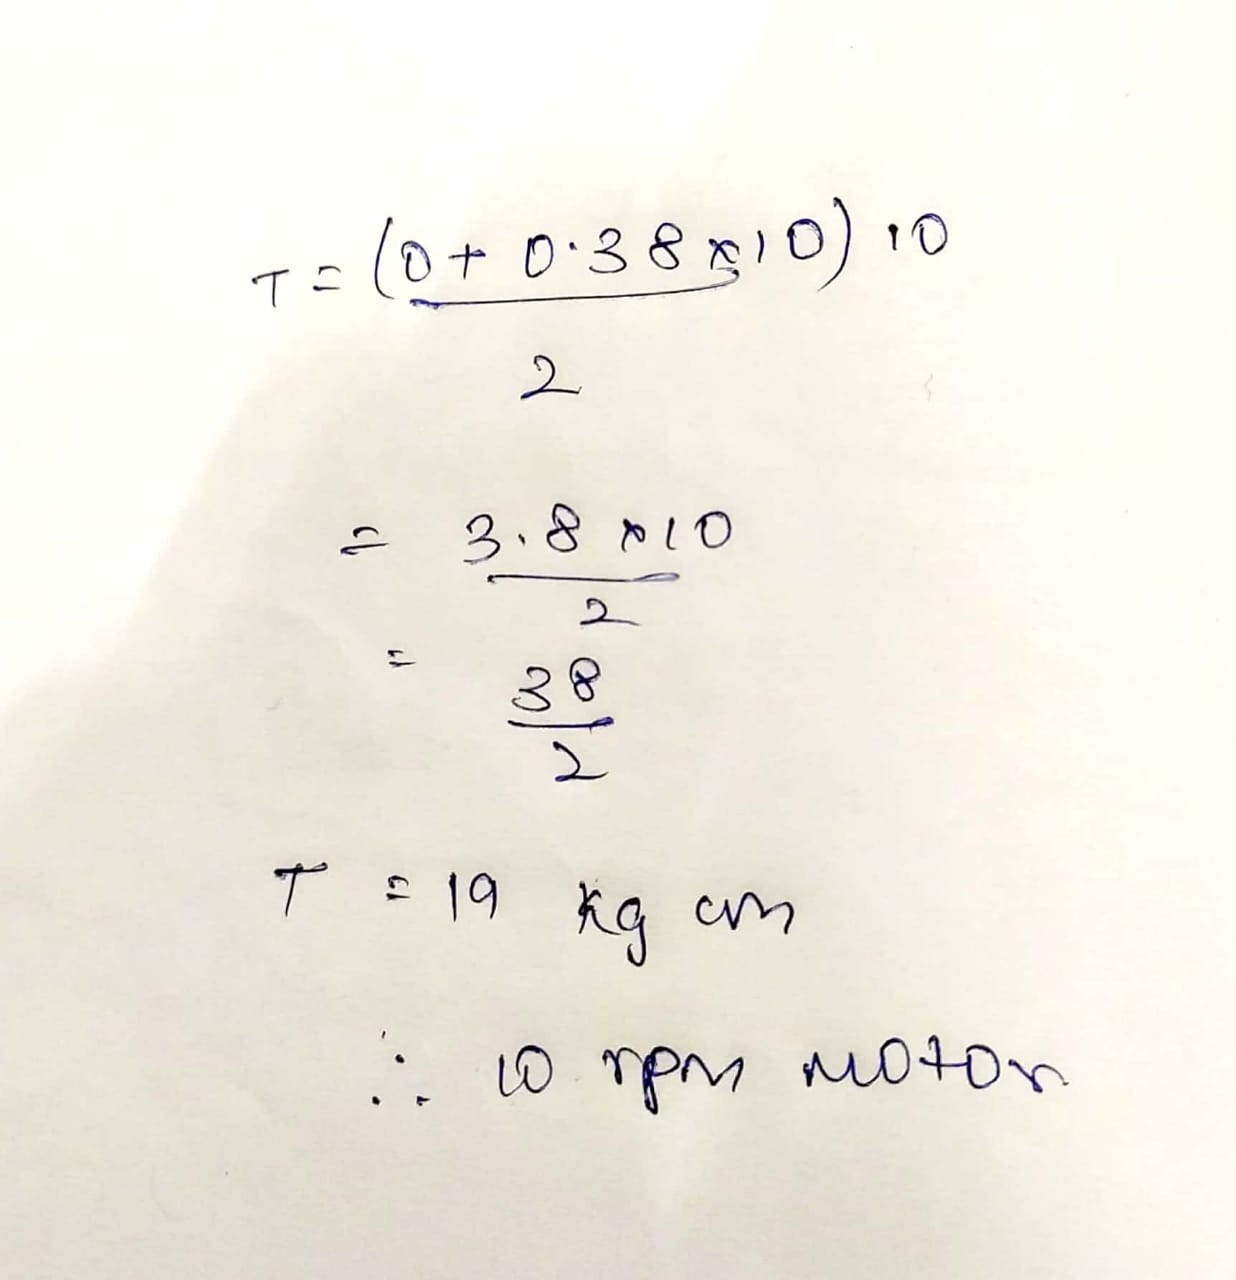 T = (0 + 0.38 × 10) 10
2
= 3.8 × 10
2
= 38
2
T = 19 kg cm
∴ 10 rpm motor